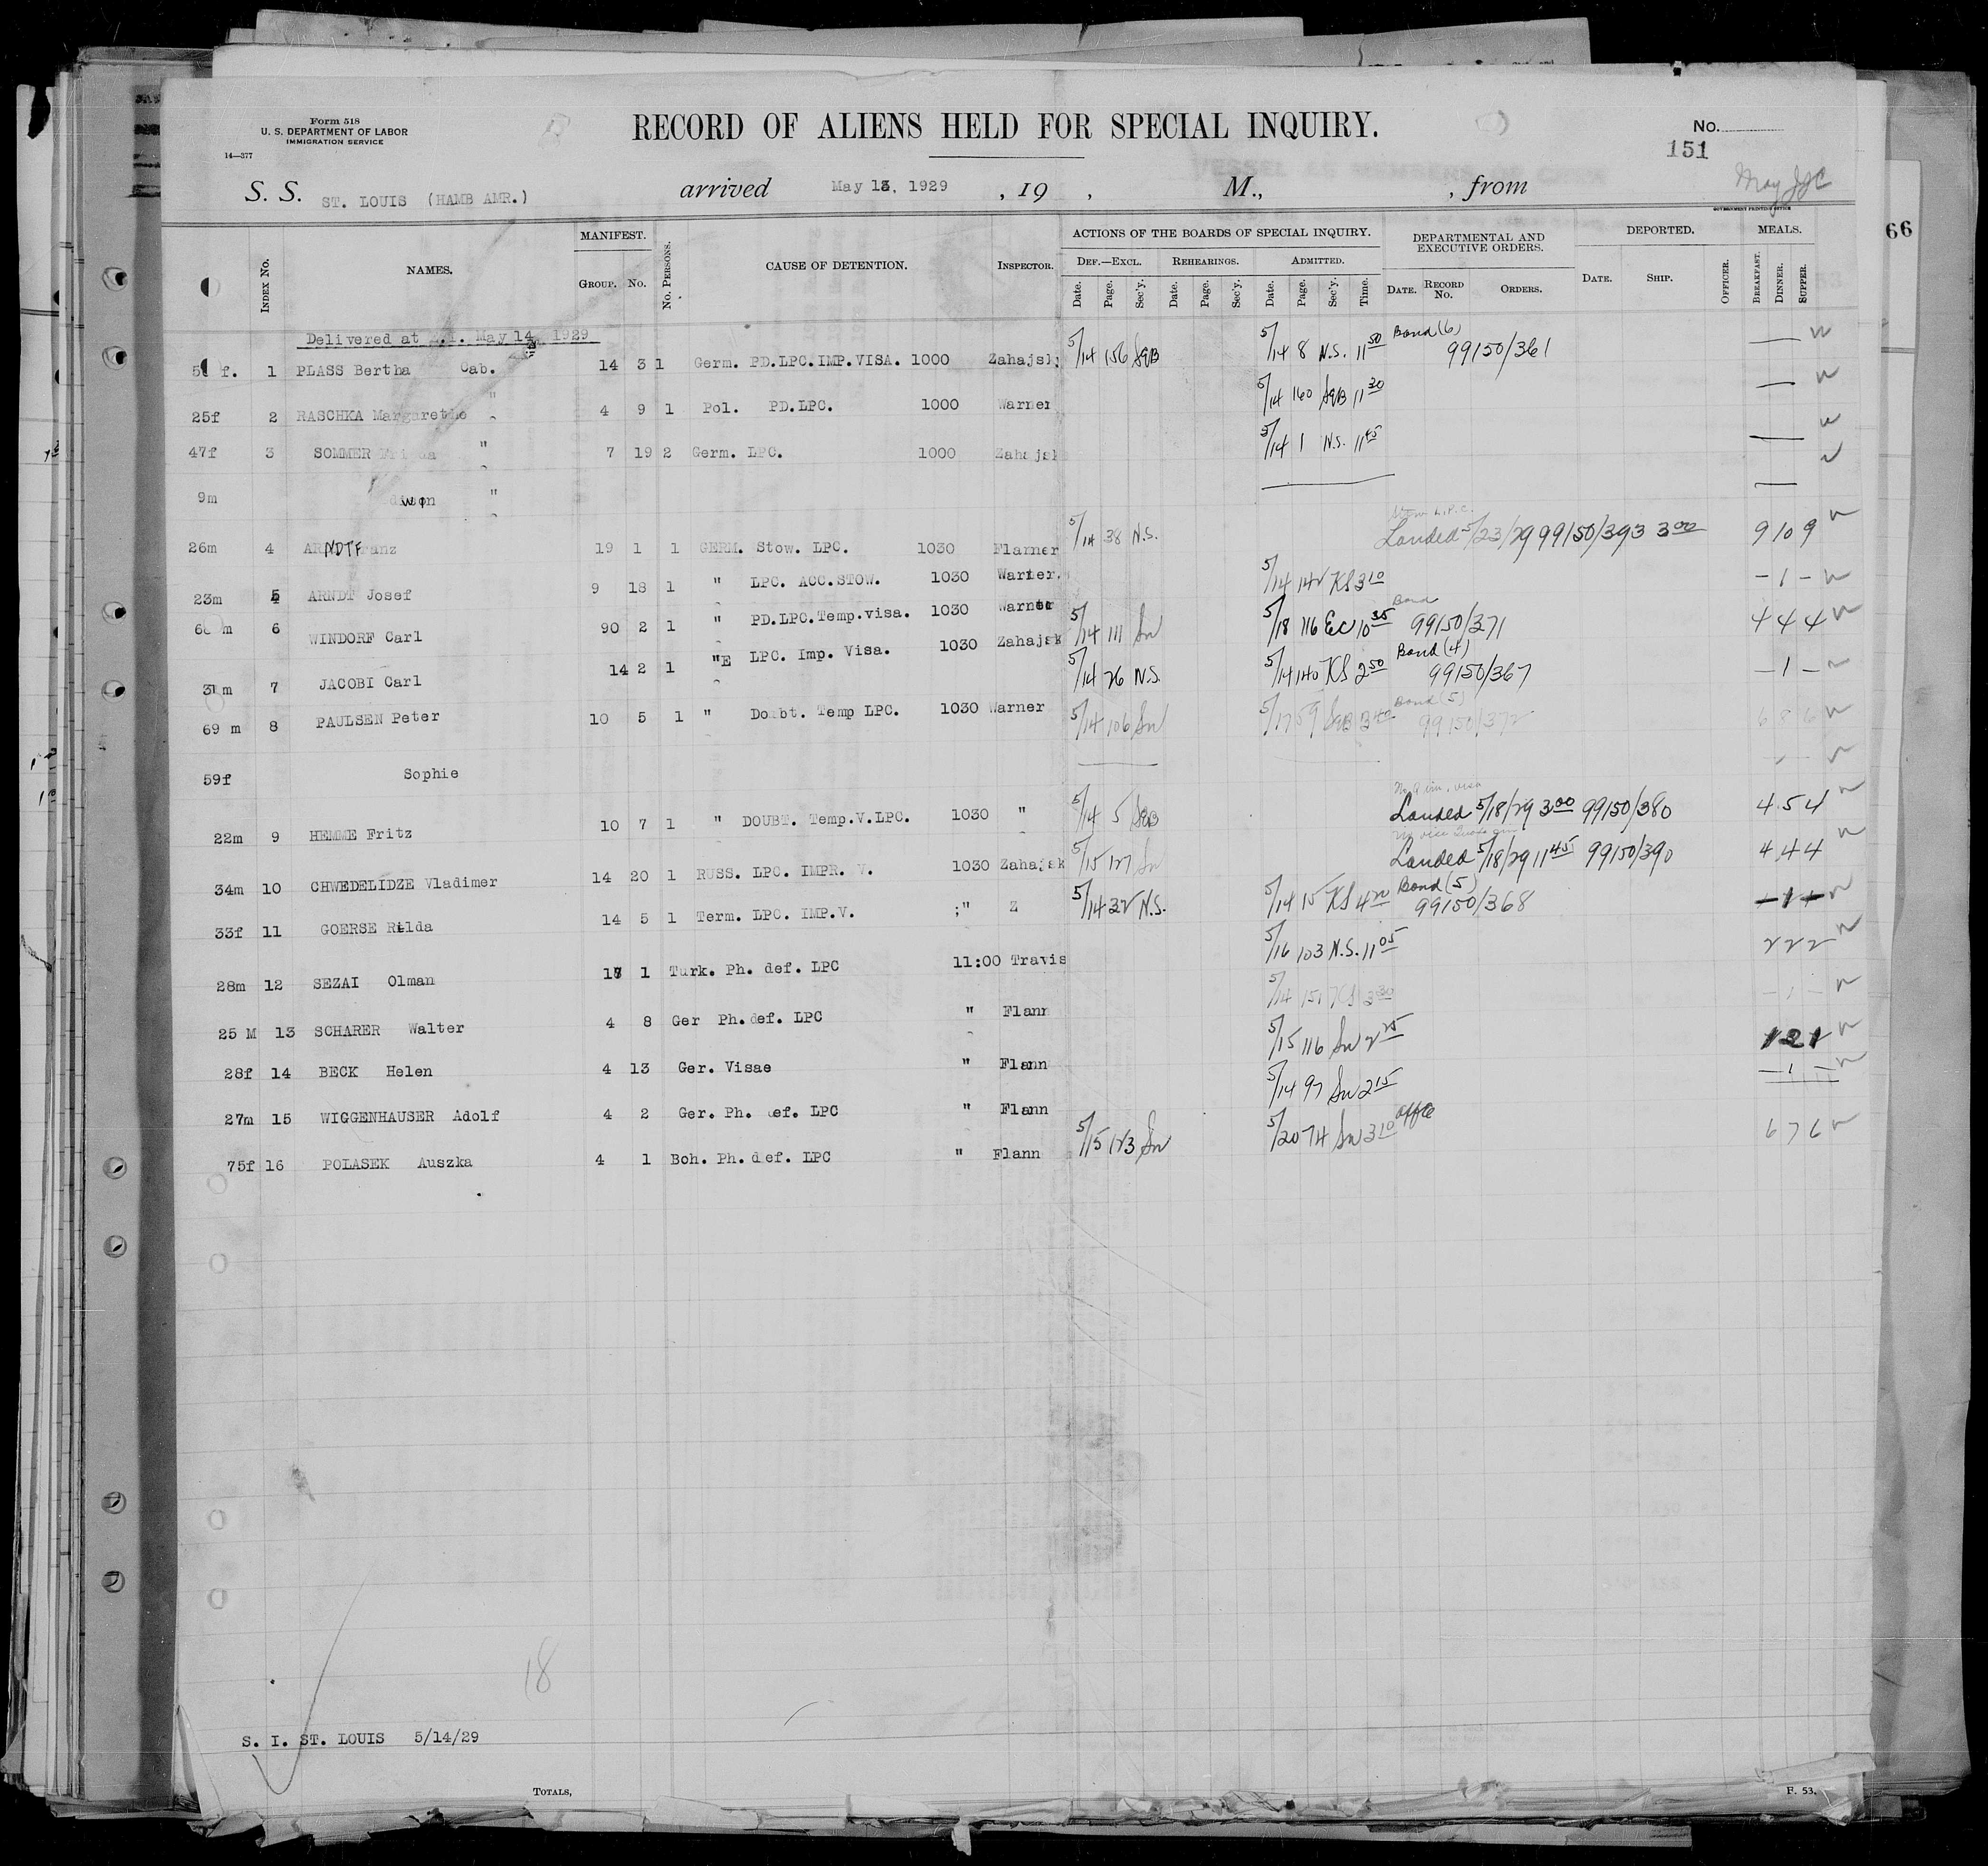 Form 518
U. S. DEPARTMENT OF LABOR
IMMIGRATION SERVICE
14—377
RECORD OF ALIENS HELD FOR SPECIAL INQUIRY.
No.
151
S. S. ST. LOUIS (HAMB AMR.) arrived May 13, 1929 , 19 , M., , from
GOVERNMENT PRINTING OFFICE
66
INDEX No. NAMES. MANIFEST. GROUP. No. No. PERSONS. CAUSE OF DETENTION. INSPECTOR. ACTIONS OF THE BOARDS OF SPECIAL INQUIRY. DEF.—EXCL. Date. Page. Sec'y. REHEARINGS. Date. Page. Sec'y. ADMITTED. Date. Page. Sec'y. Time. DEPARTMENTAL AND EXECUTIVE ORDERS. DATE. RECORD No. ORDERS. DEPORTED. DATE. SHIP. OFFICER. MEALS. BREAKFAST. DINNER. SUPPER.
Delivered at May 14, 1929
f. 1 PLASS Bertha Cab. 14 3 1 Germ. PD.LPC.IMP.VISA. 1000 5/14 156 SqB 5/14 8 N.S. 11 50 Bond (6) 99150/361
25f 2 RASCHKA Margarethe " 4 9 1 Pol. PD.LPC. 1000 Warner 5/14 160 SqB 11 30
47f 3 SOMMER " 7 19 2 Germ. LPC. 1000 Zahajsk 5/14 1 N.S. 11 45
9m "
26m 4 19 1 1 GERM. Stow. LPC. 1030 Flarner 5/14 38 N.S. Landed 5/23/29 99150/393 3 00 9 10 9
23m 5 ARNDT Josef 9 18 1 " LPC. ACC.STOW. 1030 Warner. 5/14 142 KS 3 10 – 1 –
m 6 WINDORF Carl 90 2 1 " PD.LPC.Temp.visa. 1030 Warner 5/14 111 Sw 5/18 116 EC 10 35 Bond 99150/371 4 4 4
m 7 JACOBI Carl 14 2 1 "E LPC. Imp. Visa. 1030 Zahajsk 5/14 26 N.S. 5/14 140 KS 2 50 Bond (4) 99150/367 – 1 –
69 m 8 PAULSEN Peter 10 5 1 " Doubt. Temp LPC. 1030 Warner 5/14 106 Sw 5/17 59 SqB Bond (5) 99150/372 6 8 6
59f Sophie
22m 9 HEMME Fritz 10 7 1 " DOUBT. Temp.V.LPC. 1030 " 5/14 5 SqB Landed 5/18/29 3 00 99150/380 4 5 4
34m 10 CHWEDELIDZE Vladimer 14 20 1 RUSS. LPC. IMPR. V. 1030 Zahajsk 5/15 127 Sw Landed 5/18/29 11 45 99150/390 4 4 4
33f 11 GOERSE 14 5 1 Term. LPC. IMP.V. ;" Z 5/14 32 N.S. 5/14 15 KS 4 20 Bond (5) 99150/368 – 1 –
28m 12 SEZAI Olman 1 Turk. Ph. def. LPC 11:00 Travis 5/16 103 N.S. 11 05 2 2 2
25 M 13 SCHARER Walter 4 8 Ger Ph.def. LPC " Flann 5/14 151 KS 3 30 – 1 –
28f 14 BECK Helen 4 13 Ger. Visae " Flann 5/15 116 Sw 2 25 1 2 1
27m 15 WIGGENHAUSER Adolf 4 2 Ger. Ph. def. LPC " Flann 5/14 97 Sw 2 15 – 1 –
75f 16 POLASEK Auszka 4 1 Boh. Ph. def. LPC " Flann 5/15 123 Sw 5/20 74 Sw 3 10 6 7 6
18
S. I. ST. LOUIS 5/14/29
TOTALS,
F. 53.